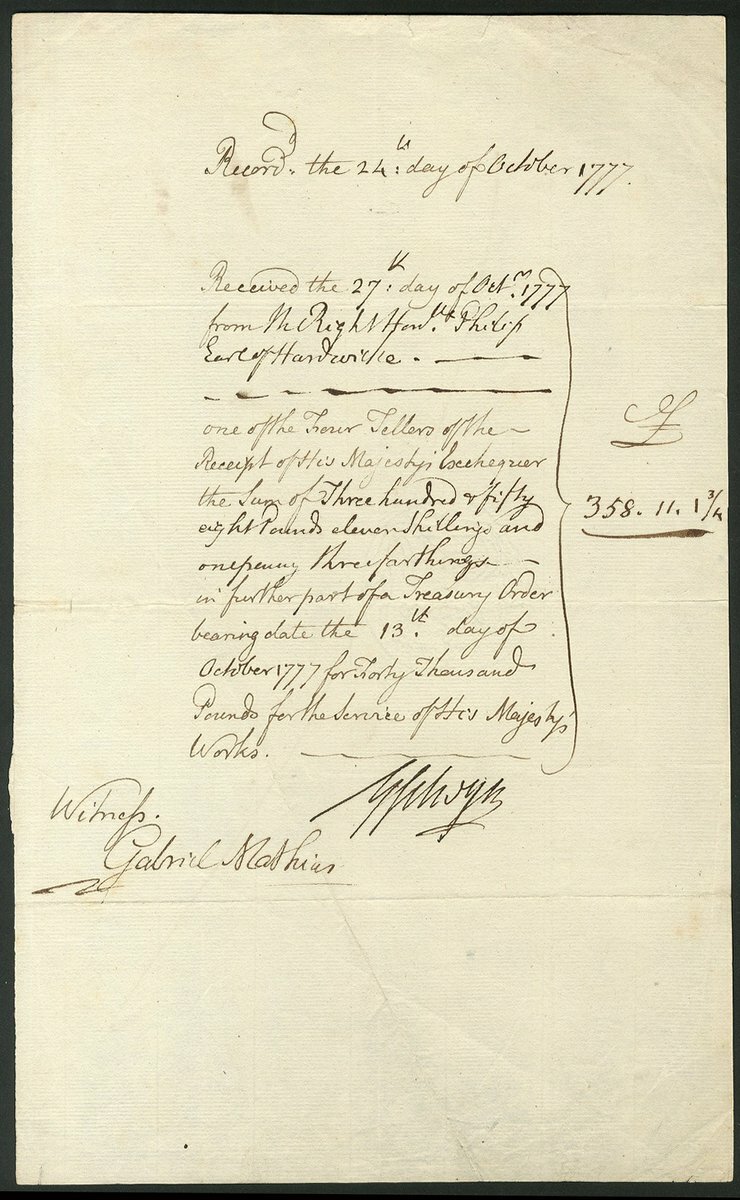 Record.d the 24:th day of October 1777.
Received the 27:th day of Oct.r 1777
from the Right Hon.ble Philip
Earl of Hardwicke. —
one of the Four Tellers of the —
Receipt of His Majesty's Exchequer
the Sum of Three hundred & fifty
eight Pounds eleven Shillings and
one penny three farthings —
in further part of a Treasury Order
bearing date the 13.th day of
October 1777 for Forty Thousand
Pounds for the Service of His Majesty's
Works. —
£
358. 11. 1 3/4
GSelwyn
Witness.
Gabriel Mathias